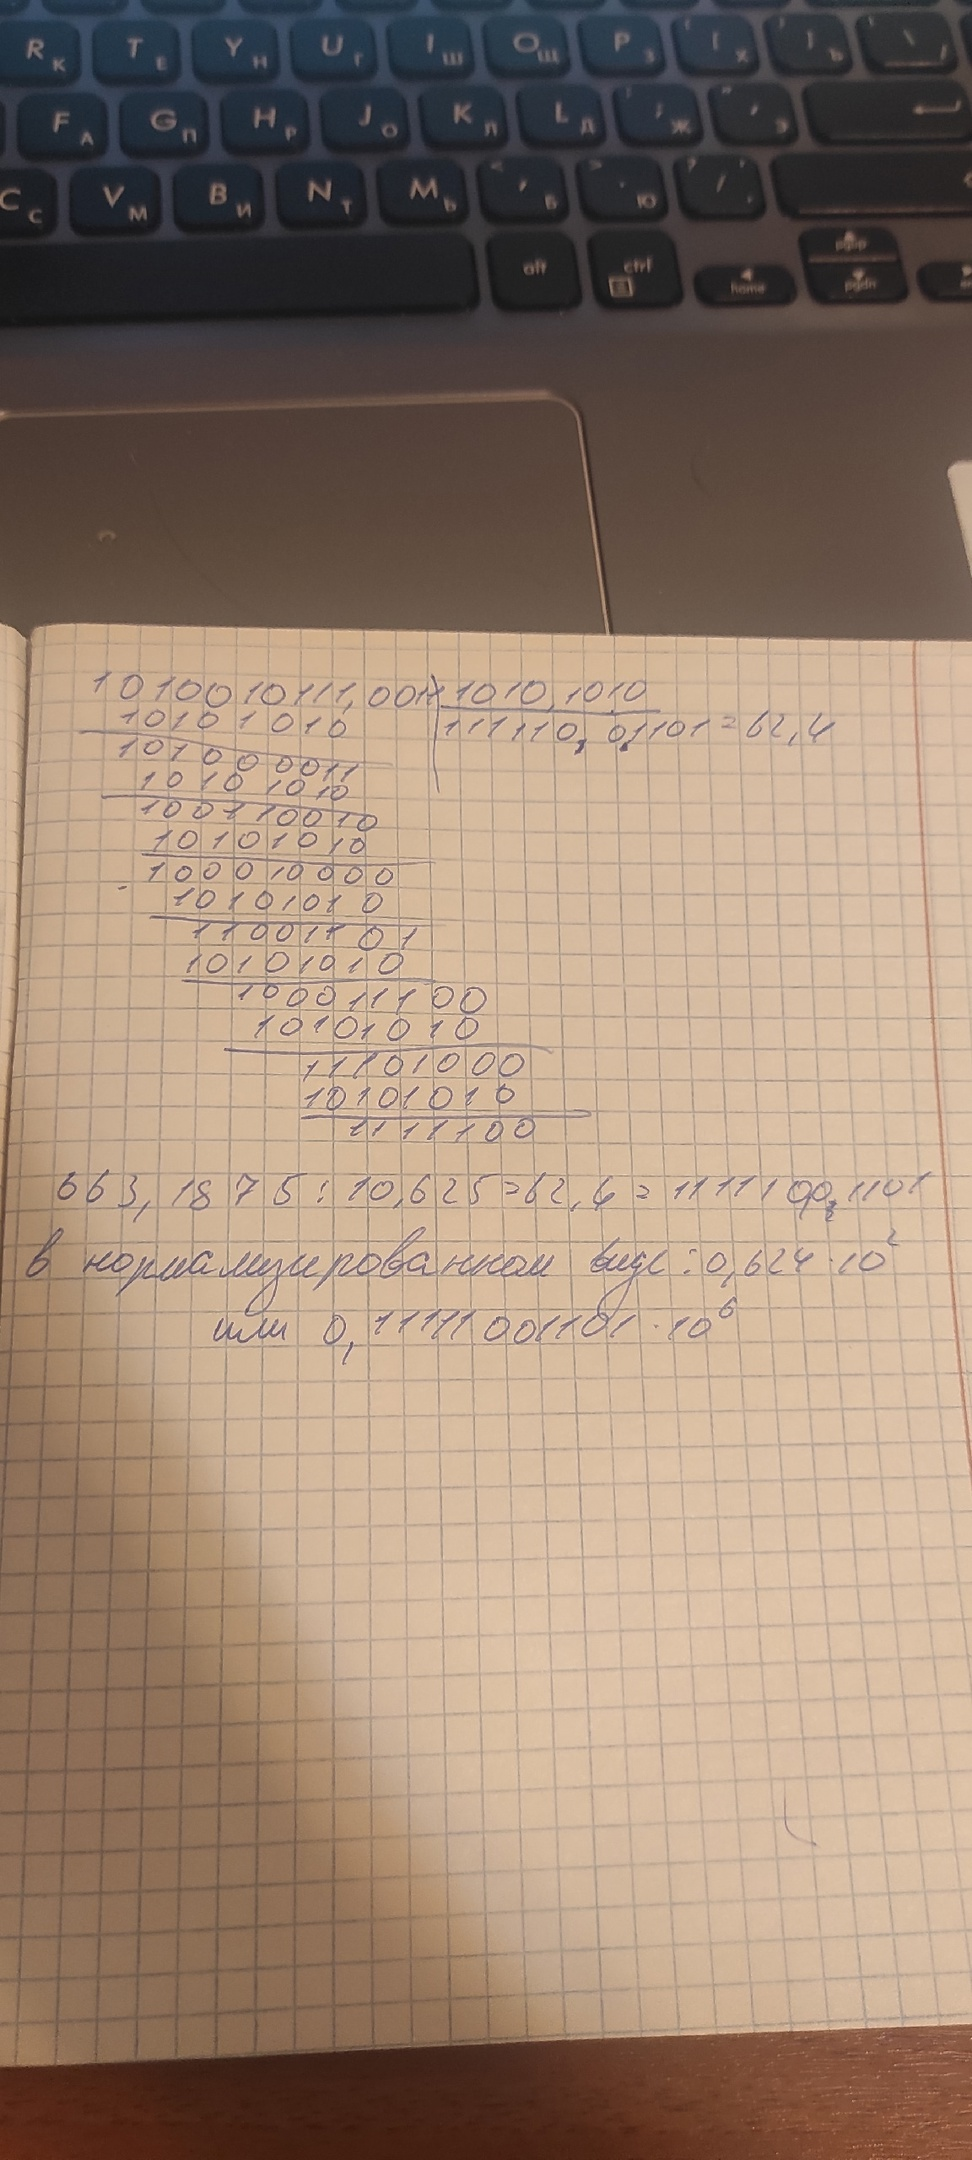 R К T Е Y Н U Г I Ш O Щ P З [ Х ] Ъ \ /
F А G П H Р J О K Л L Д ; Ж ' Э
C С V М B И N Т M Ь , Б . Ю / .
alt ctrl home pgup pgdn
1010010111,0011 1010,1010
10101010 111110,0,1101=62,4
101000011
10101010
100110010
10101010
100010000
10101010
11001101
10101010
100011100
10101010
11101000
10101010
1111100
663,1875:10,625=62,4=1111100,1101
в нормализированном виде:0,624·10²
или 0,11111001101·10⁶